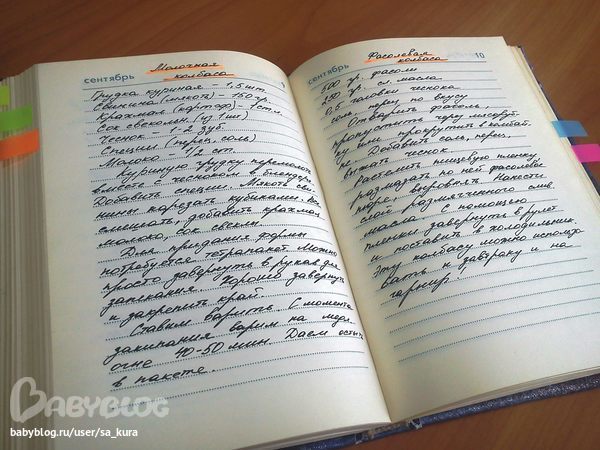 Молочная
колбаса
сентябрь
Грудка куриная - 1,5 шт.
Свинина (мякоть) - 150 гр.
Крахмал (картоф) - 1 ст.л.
Сок свекольн. (из 1 шт)
Чеснок - 1-2 зуб.
Специи (перец, соль)
Молоко - 1/2 ст.
Куриную грудку перемолоть
вместе с чесноком в блендере.
Добавить специи. Мякоть сви-
нины нарезать кубиками. Все
смешать, добавить крахмал,
молоко, сок свеклы.
Для придания формы
потребуется тетрапакет. Можно
просто завернуть в рукав для
запекания. Хорошо завернуть
и закрепить край.
Ставим варить. С момента
закипания варим на медл.
огне 40-50 мин. Даем остыть
в пакете.
Фасолевая
колбаса
сентябрь
10
500 гр. фасоли
250 гр. сл. масла
0,5 головки чеснока
соль, перец по вкусу
Отварить фасоль,
пропустить через мясоруб-
ку или прокрутить в комбай-
не. Добавить соль, перец,
выжать чеснок.
Расстелить пищевую пленку,
размазать по ней фасолевое
пюре, выровнять. Нанести
слой размягченного слив.
масла. С помощью
пленки завернуть в рулет
и поставить в холодильник.
Эту колбасу можно использо-
вать к завтраку и на
гарнир!
BABYBLOG
babyblog.ru/user/sa_kura